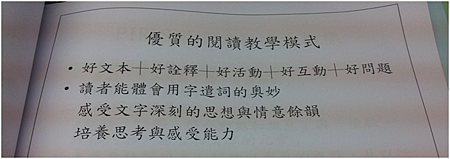 優質的閱讀教學模式
• 好文本＋好詮釋＋好活動＋好互動＋好問題
• 讀者能體會用字遣詞的奧妙
感受文字深刻的思想與情意餘韻
培養思考與感受能力